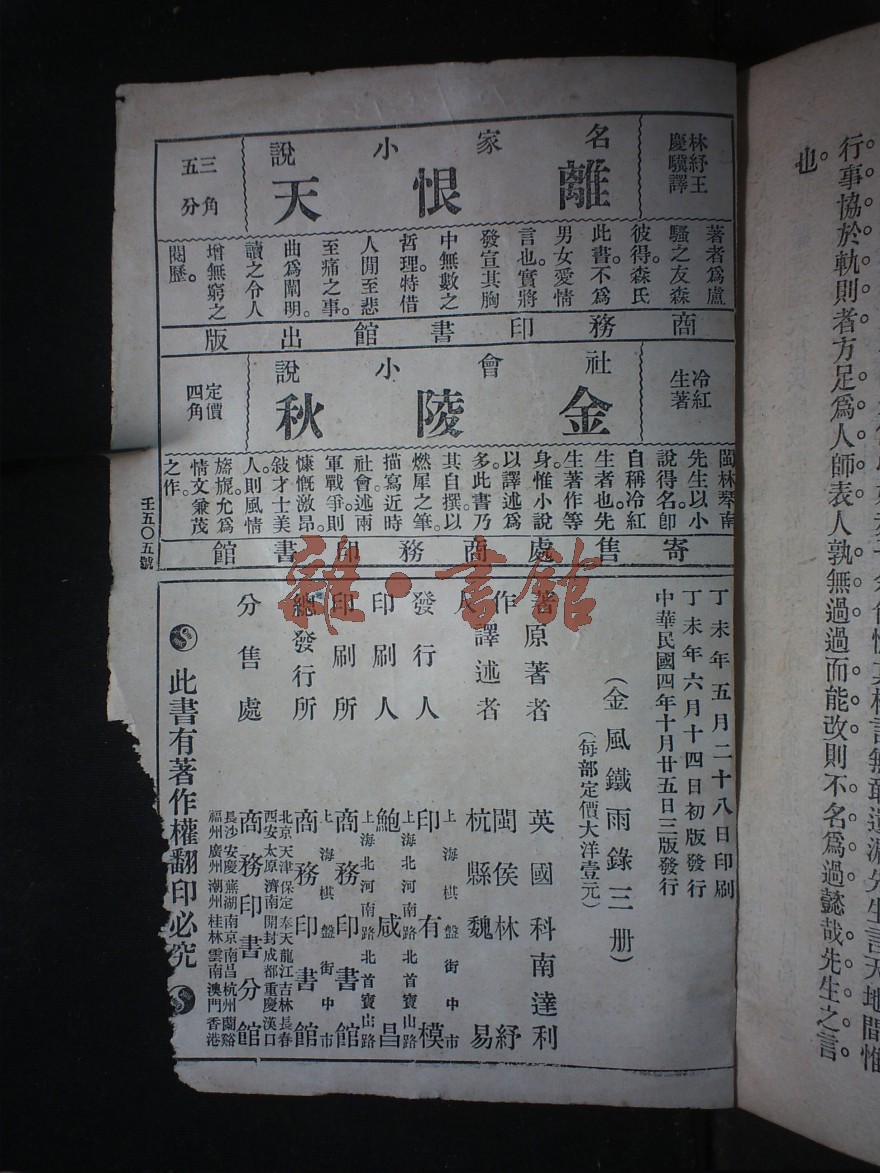 行事協於軌則者方足爲人師表人孰無過過而能改則不名爲過懿哉先生之言
也。
林紓王
慶驥譯
名家小說
離恨天
三角
五分
著者爲盧
騷之友森
彼得。森氏
此書不爲
男女愛情
言也。實將
發宣其胸
中無數之
哲理。特借
人間至悲
至痛之事。
曲爲闡明。
讀之令人
增無窮之
閱歷。
商務印書館出版
冷紅
生著
社會小說
金陵秋
定價
四角
閩林琴南
先生以小
說得名。即
自稱冷紅
生者也。先
生著作等
身惟小說
以譯述爲
多。此書乃
其自撰。以
燃犀之筆。
描寫近時
社會。述兩
軍戰爭。則
慷慨激昂。
敍才士美
人。則風情
旖旎。允爲
情文兼茂
之作。
寄售處商務印書館
壬五〇五號
丁未年五月二十八日印刷
丁未年六月十四日初版發行
中華民國四年十月廿五日三版發行
(金風鐵雨錄三册)
(每部定價大洋壹元)
著作人
原著者 英國科南達利
譯述者 閩侯林紓
杭縣魏易
發行人 印有模
上海棋盤街中市
印刷人 鮑咸昌
上海北河南路北首寶山路
印刷所 商務印書館
上海北河南路北首寶山路
總發行所 商務印書館
上海棋盤街中市
分售處 商務印書分館
北京天津保定奉天龍江吉林長春
西安太原濟南開封成都重慶漢口
長沙安慶蕪湖南京南昌杭州蘭谿
福州廣州潮州桂林雲南澳門香港
此書有著作權翻印必究
雜·書館